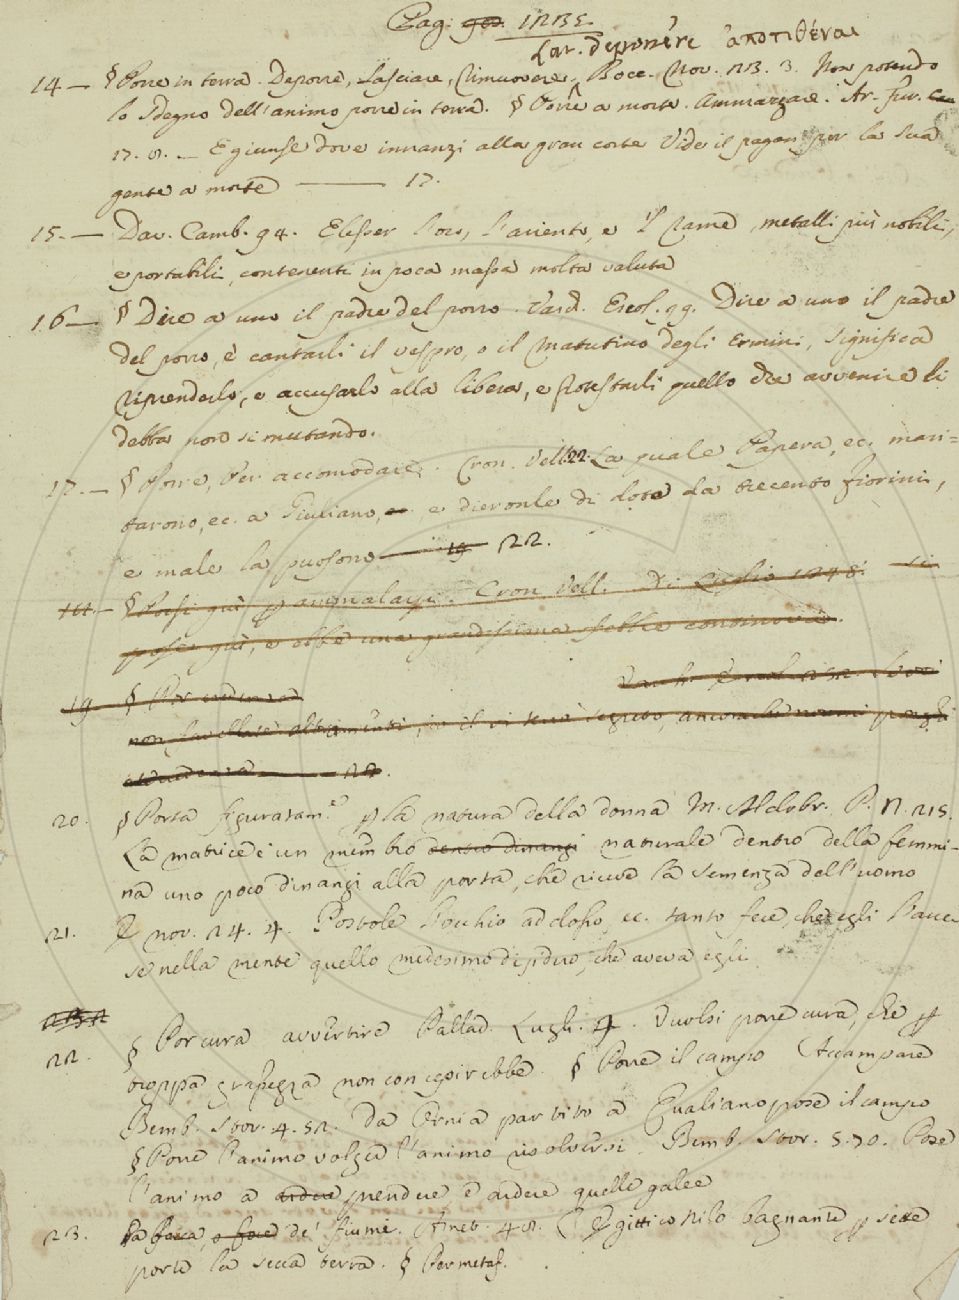 Pag. ~~902~~. 1232.
Lat. deponere ἀποτιθέναι
14 — § Porre in terra. Deporre, Lasciare, Rimuovere. Bocc. Nov. 23. 3. Non potendo
lo sdegno dell'animo porre in terra. § Porre a morte. Ammazzare. Ar. Fur.
17. 8. — E giunse dove innanzi alla gran corte Vide il pagan por la sua
gente a morte ——— 17.
15. — Dav. Camb. 94. Elesser l'oro, l'ariento, e 'l Rame metalli più nobili,
e portabili, contenenti in poca massa molta valuta
16 — § Dire a uno il padre del porro. Varch. Ercol. 99. Dire a uno il padre
del porro, e cantarli il vespro, o il Matutino degli Ermini, significa
riprenderlo, e accusarlo alla libera, e protestarli quello che avvenire li
debba non si mutando.
17. — § Porre, Per accomodare. Cron. Vell. 22. La quale Papera, ec. mari-
tarono, ec. a Giuliano, e dieronle di dote da trecento fiorini,
e male la puosono ~~19~~ 22.
~~18. — § Porsi giù p ammalarsi. Cron Vell. Di Luglio 1348. si~~
~~pose giù, e ebbe una grandissima febbre continova.~~
~~19 § Por credenza Varch. Ercol.~~
~~non favellare altrimenti, ancorché~~
~~credenza — 22.~~
20. § Porta figuratam.e p la natura della donna M. Aldobr. P. N. 215.
La matrice è un membro ~~dentro dinanzi~~ naturale dentro della femmi-
na uno poco dinanzi alla porta, che riceve la semenza dell'uomo
21. E nov. 24. 4. Postole l'occhio addosso, ec. tanto fece, che egli l'acce-
se nella mente quello medesimo disidero, che aveva egli
22. § Por cura avvertire Pallad. Lugl. 4. Vuolsi porre cura, che p
troppa grassezza non concepirebbe. § Porre il campo Accampare
Bemb. Stor. 4. 52. Da Ornia partito a Gualiano pose il campo
§ Porre l'animo volger l'animo risolversi. Bemb. Stor. 5. 70. Pose
l'animo a ~~ardere~~ prendere e ardere quelle galee
23. Pa foca, ~~o foce~~ de' fiumi. Amet. 48. L'Egittico Nilo bagnante p sette
porte la secca terra. § Per metaf.